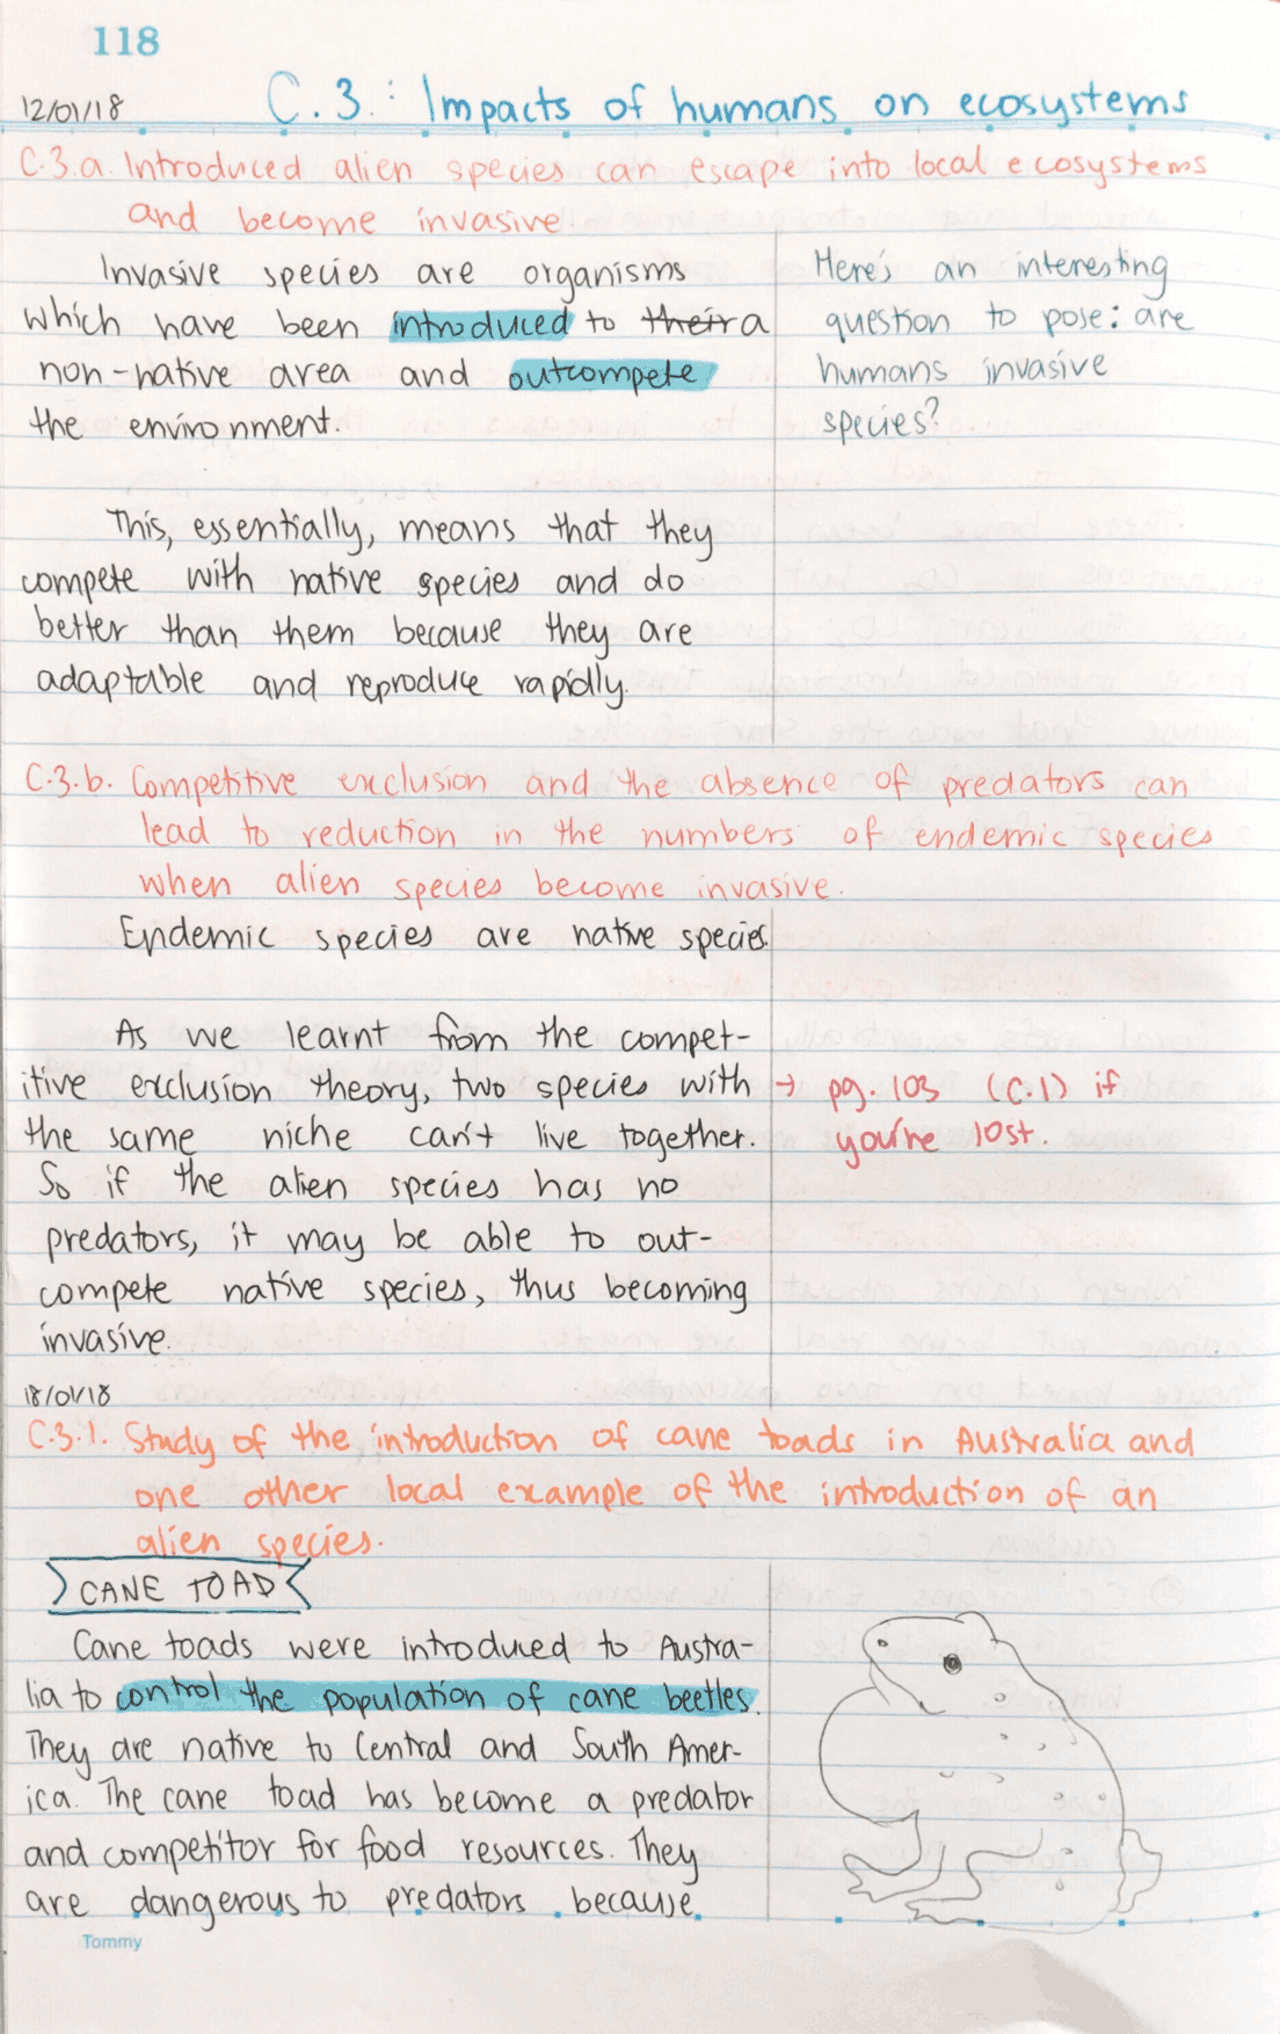 118
12/01/18
C.3.: Impacts of humans on ecosystems
C.3.a. Introduced alien species can escape into local ecosystems
and become invasive.
Invasive species are organisms
which have been introduced to their a
non-native area and outcompete
the environment.
Here's an interesting
question to pose: are
humans invasive
species?
This, essentially, means that they
compete with native species and do
better than them because they are
adaptable and reproduce rapidly.
C.3.b. Competitive exclusion and the absence of predators can
lead to reduction in the numbers of endemic species
when alien species become invasive.
Endemic species are native species.
As we learnt from the compet-
itive exclusion theory, two species with
the same niche can't live together.
So if the alien species has no
predators, it may be able to out-
compete native species, thus becoming
invasive.
→ pg. 103 (C.1) if
you're lost.
18/01/18
C.3.1. Study of the introduction of cane toads in Australia and
one other local example of the introduction of an
alien species.
CANE TOAD
Cane toads were introduced to Austra-
lia to control the population of cane beetles.
They are native to Central and South Amer-
ica. The cane toad has become a predator
and competitor for food resources. They
are dangerous to predators because
Tommy